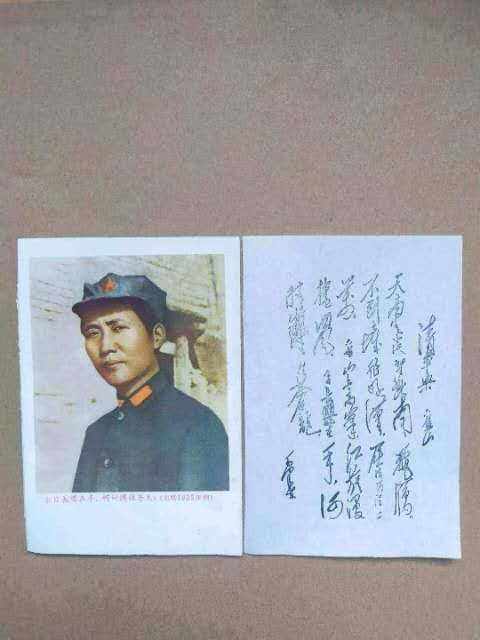 今日长缨在手,何时缚住苍龙?
清平乐 六盘山
天高云淡 望断南飞雁
不到长城非好汉 屈指行程二
万 六盘山上高峰 红旗漫
卷西风 今日长缨在手 何
时缚住苍龙
毛泽东